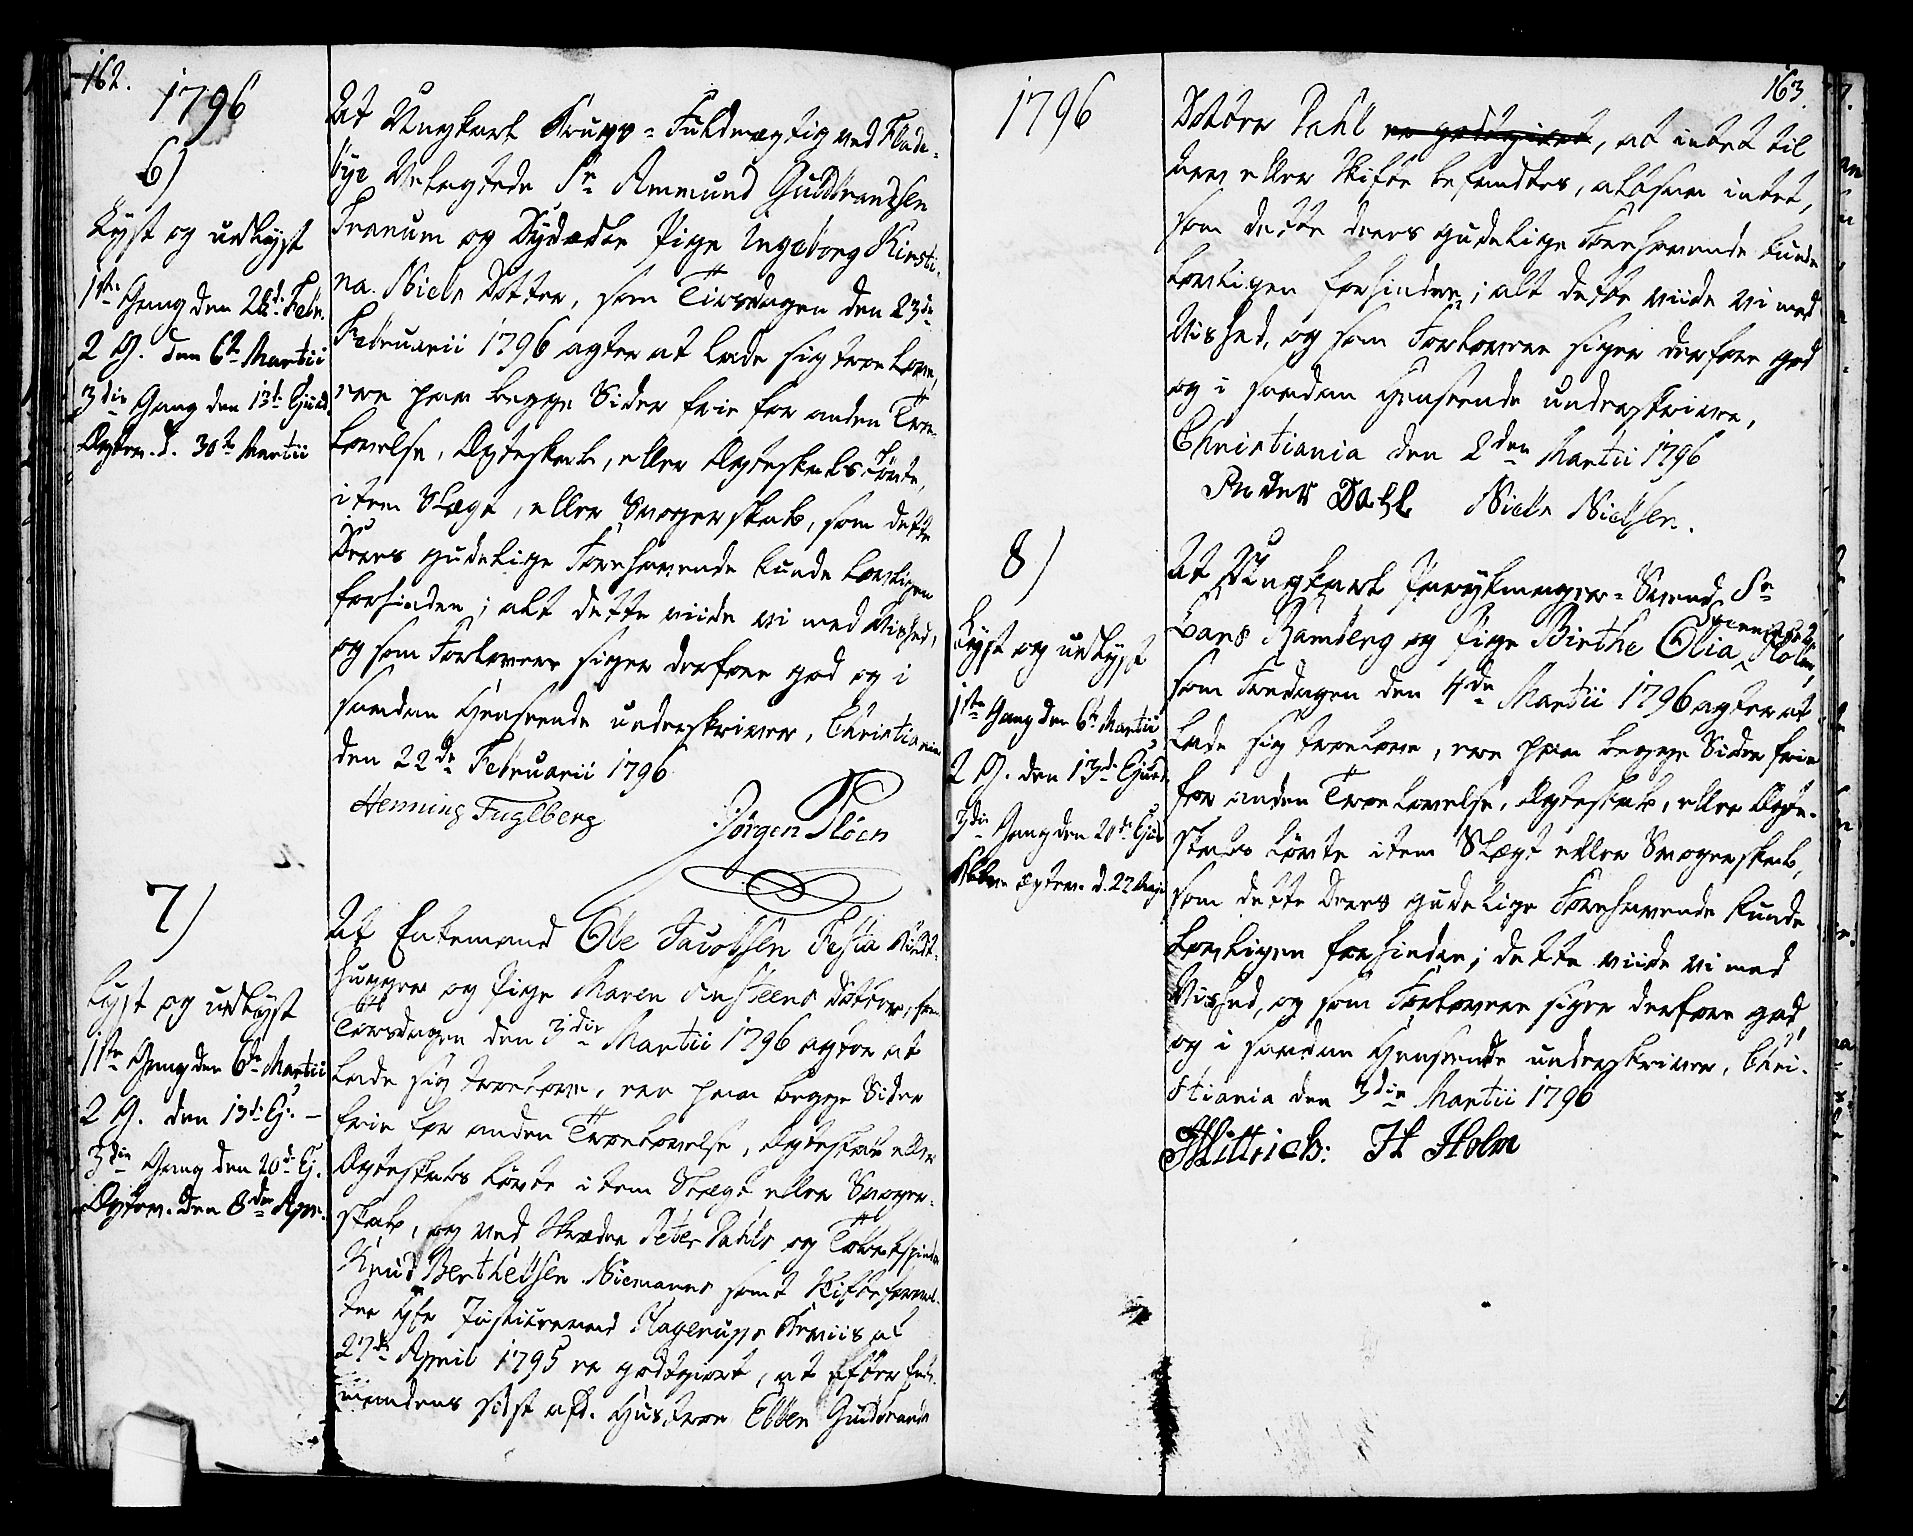 162.
1796
6)
Lyst og udlyst
1ste Gang den 28de Febr.
2 G. den 6te Martii
3die Gang den 13de Ejusd.
Ægtev. d. 30te Martii
At Ungkarl Krupp-Fuldmægtig ved Flade-
bye Velagtede Sr. Ammund Guldbrandsen
Franum og Dydædle Pige Ingeborg Kirsti-
na Niels Dotter, som Tirsdagen den 23de
Februarii 1796 agter at lade sig troe love,
ere paa begge Sider frie for anden Troe-
lovelse, Ægteskab, eller Ægteskabs Løfte,
item Slægt, eller Svogerskab, som dette
Deres gudelige Forehavende kunde lovligen
forhindre; alt dette viide vi med Vished,
og som Forlovere siger derfore god og i
saadan Henseende underskriver, Christiania
den 22de Februarii 1796
Henning Fuglberg Jørgen Pløen
7)
Lyst og udlyst
1ste Gang den 6te Martii
2 G. den 13de Ej. —
3die Gang den 20de Ej.
Ægtev. den 8de Apr.
At Enkemand Ole Jacobsen Festa
hugger og Pige Maren Amsteens Datter, som
Torsdagen den 3die Martii 1796 agter at
lade sig troelove, ere paa begge Sider
frie for anden Troelovelse, Ægteskab eller
Ægteskabs Løfte item Slægt eller Svoger-
skab, og ved Skræder Peter Dahls og
Knud Berthelsen Niemanns samt Skifteforval-
ter Hr. Justitsraad Hagerups Beviis af
27de April 1795 er godtgiort, at efter Enke-
mandens sidst afd. Hustroe Ebbe Guldbrands
1796
8)
Lyst og udlyst
1ste Gang den 6te Martii
2 G. den 13de Ejusd.
3die Gang den 20de Ejusd
Ægtev. d. 22
163.
Datter Dahl er godtgiort, at intet til
Arv eller Skifte befandtes, altsaa intet,
som dette deres gudelige Forehavende kunde
lovligen forhindre; alt dette viide vi med
Vished, og som Forlovere siger derfore god
og i saadan Henseende underskriver,
Christiania den 2den Martii 1796
Peder Dahl Niels Nielsen.
At Ungkarl Parykmager-Svend Sr.
Lars Ramberg og Pige Birthe Olia Holm,
som Fredagen den 4de Martii 1796 agter at
lade sig troelove, ere paa begge Sider frie
for anden Troelovelse, Ægteskab, eller Ægte-
skabs Løfte item Slægt eller Svogerskab,
som dette Deres gudelige Forehavende kunde
lovligen forhindre; dette viide vi med
Vished, og som Forlovere siger derfore god,
og i saadan Henseende underskriver, Chri-
stiania den 3die Martii 1796
Holm